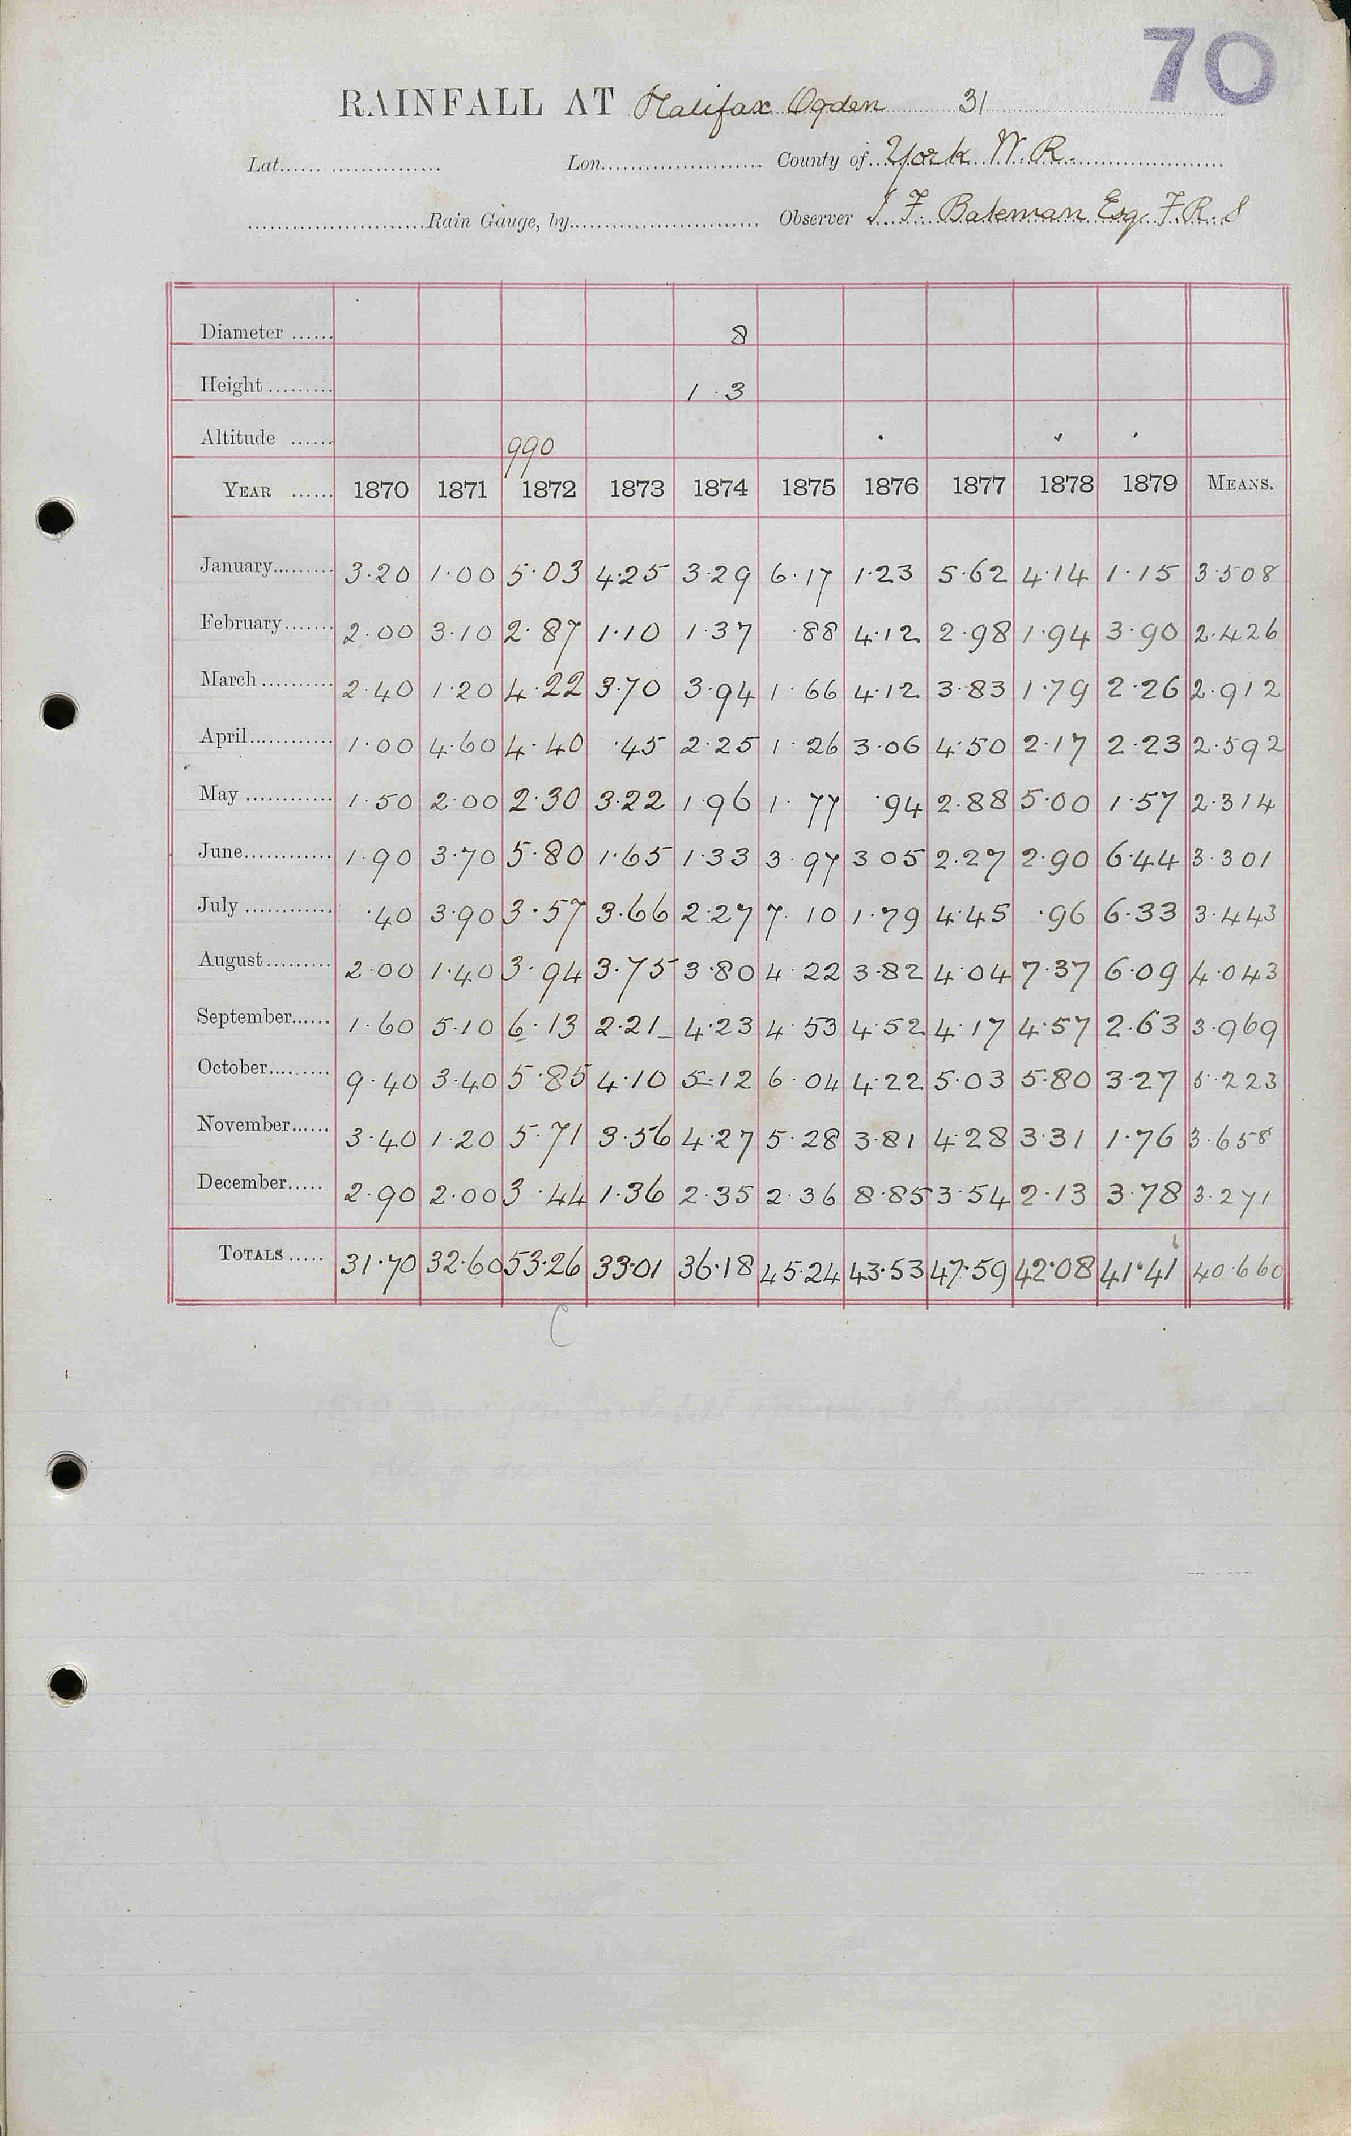 70
RAINFALL AT Halifax Ogden 31
Lat. Lon. County of York W. R.
Rain Gauge, by Observer J F. Bateman Esq. F. R. S
Diameter 8
Height 1 · 3
Altitude 990
YEAR 1870 1871 1872 1873 1874 1875 1876 1877 1878 1879 MEANS.
January 3·20 1·00 5·03 4·25 3·29 6·17 1·23 5·62 4·14 1·15 3·508
February 2·00 3·10 2·87 1·10 1·37 ·88 4·12 2·98 1·94 3·90 2·426
March 2·40 1·20 4·22 3·70 3·94 1·66 4·12 3·83 1·79 2·26 2·912
April 1·00 4·60 4·40 ·45 2·25 1·26 3·06 4·50 2·17 2·23 2·592
May 1·50 2·00 2·30 3·22 1·96 1·77 ·94 2·88 5·00 1·57 2·314
June 1·90 3·70 5·80 1·65 1·33 3·97 3 05 2·27 2·90 6·44 3·301
July ·40 3·90 3·57 3·66 2·27 7·10 1·79 4·45 ·96 6·33 3·443
August 2·00 1·40 3·94 3·75 3·80 4·22 3·82 4·04 7·37 6·09 4·043
September 1·60 5·10 6·13 2·21 4·23 4·53 4·52 4·17 4·57 2·63 3·969
October 9·40 3·40 5·85 4·10 5·12 6·04 4·22 5·03 5·80 3·27 5·223
November 3·40 1·20 5·71 3·56 4·27 5·28 3·81 4·28 3·31 1·76 3·658
December 2·90 2·00 3·44 1·36 2·35 2·36 8·85 3·54 2·13 3·78 3·271
TOTALS 31·70 32·60 53·26 33·01 36·18 45·24 43·53 47·59 42·08 41·41 40·660
C